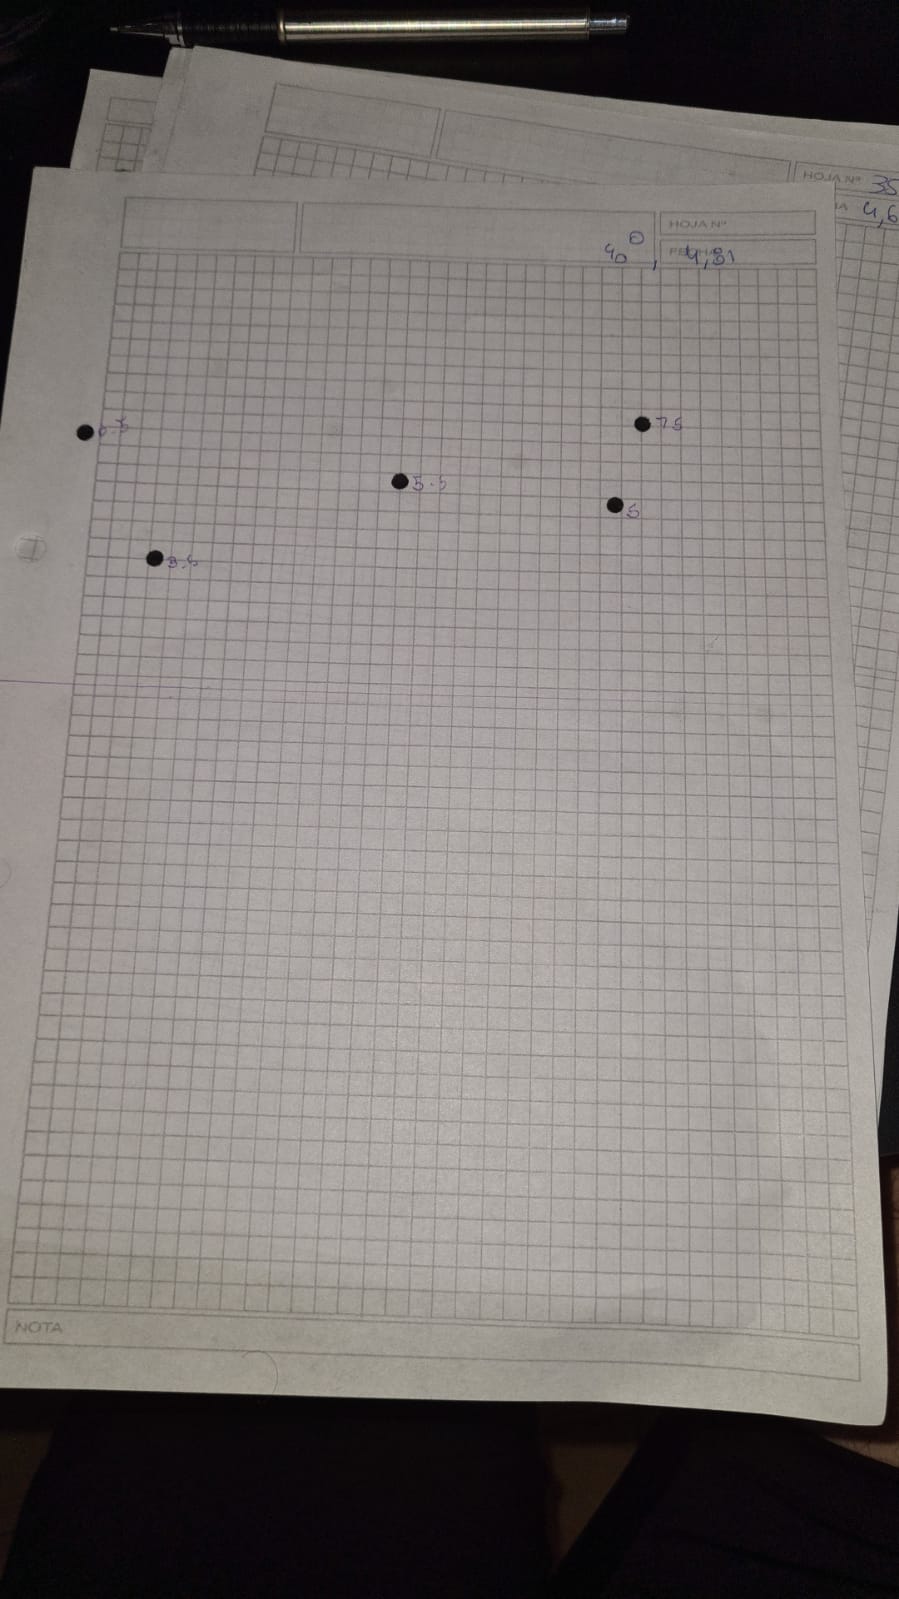 HOJA Nº 35
4,6
HOJA Nº
40° , 4,81
7.5
5.5
5
3.5
NOTA